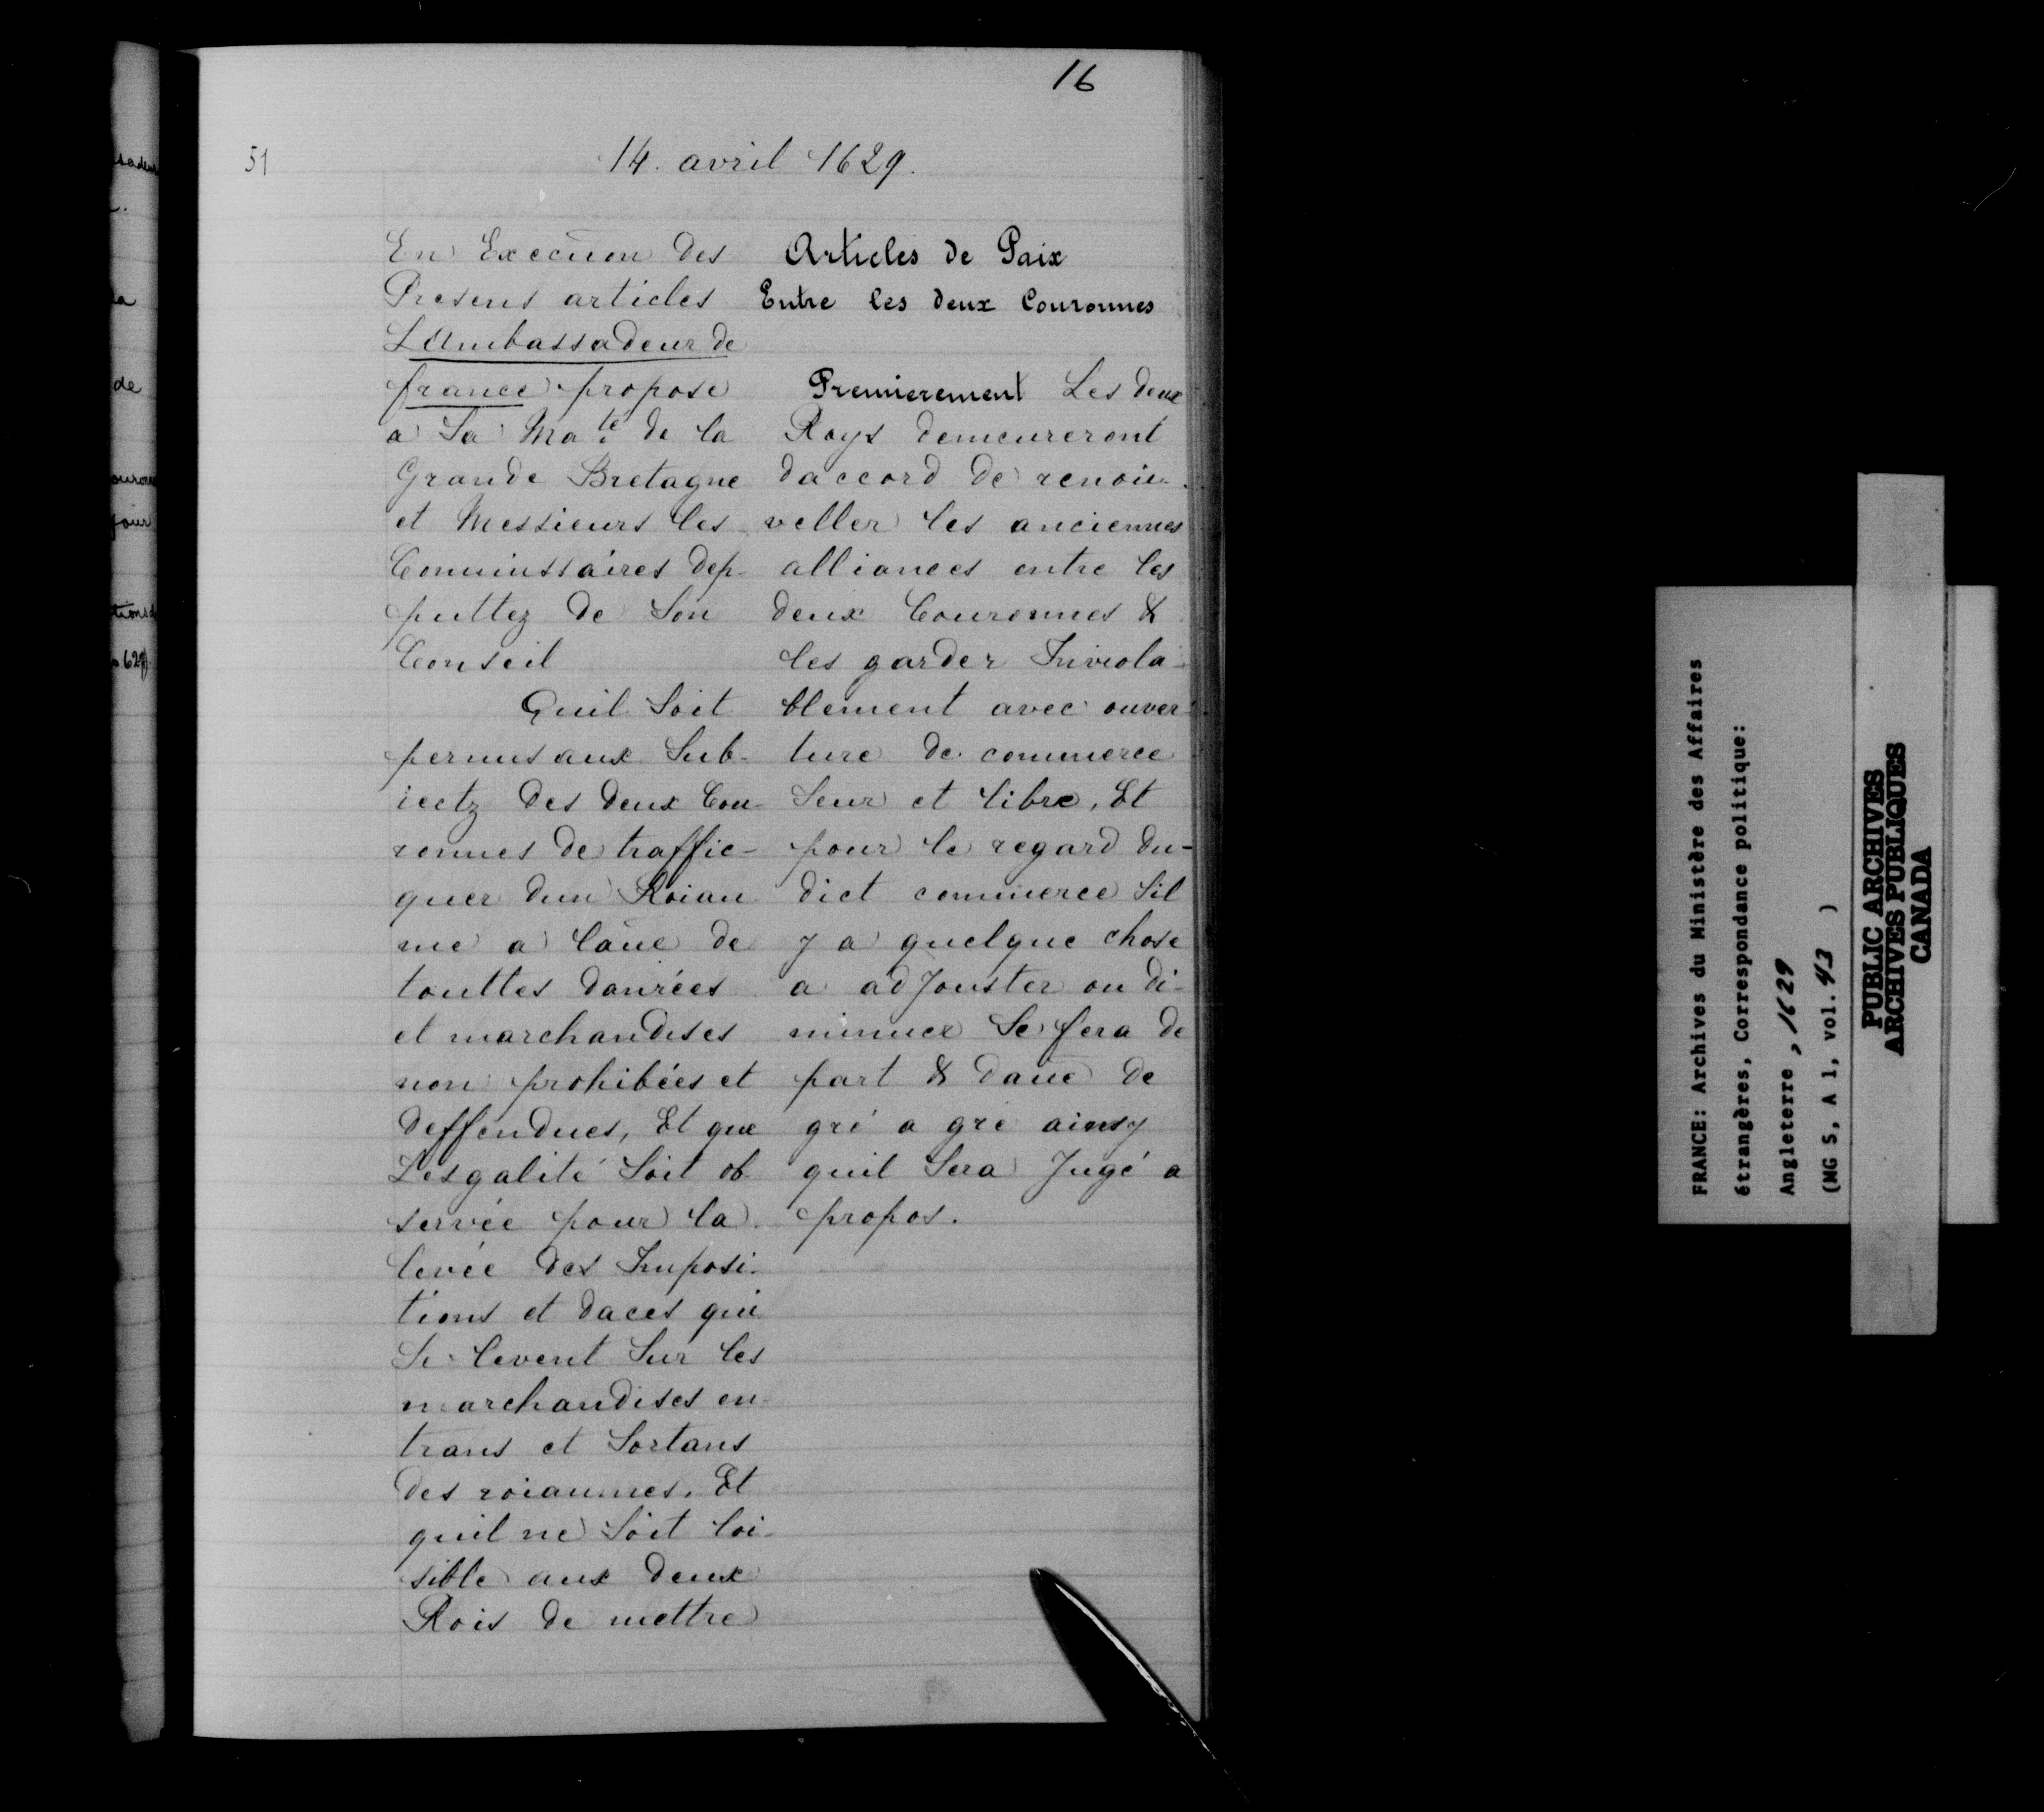 16
51
14. avril 1629.
En Execuon des
Presens articles
LAmbassadeur de
france propose
a Sa Ma.té de la
Grande Bretagne
et Messieurs les
Commissaires dep-
puttez de Son
Conseil
Quil Soit
permis aux Sub-
iectz des deux Cou-
ronnes de traffic-
quer dun Roiau
me a laūe de
touttes danrées
et marchandises
non prohibées et
deffendues, Et que
Lesgalité Soit ob
servée pour la
levée des Imposi-
tions et daces qui
Se levent Sur les
marchandises en-
trans et Sortans
des roiaumes. Et
quil ne Soit loi-
sible aux deux
Rois de mettre
Articles de Paix
Entre les deux Couronnes
Premierement Les deux
Roys demeureront
daccord de renou-
veller les anciennes
alliances entre les
deux Couronnes &
les garder Inviola-
blement avec ouver-
ture de commerce
Seur et libre, Et
pour le regard du-
dict commerce Sil
y a quelque chose
a adJouster ou di-
minuer Se fera de
part & daūe de
gré a gre ainsy
quil Sera Jugé a
propos.
la
de
jour
FRANCE: Archives du Ministère des Affaires
étrangères, Correspondance politique:
Angleterre, 1629
(MG 5, A 1, vol. 43 )
PUBLIC ARCHIVES
ARCHIVES PUBLIQUES
CANADA